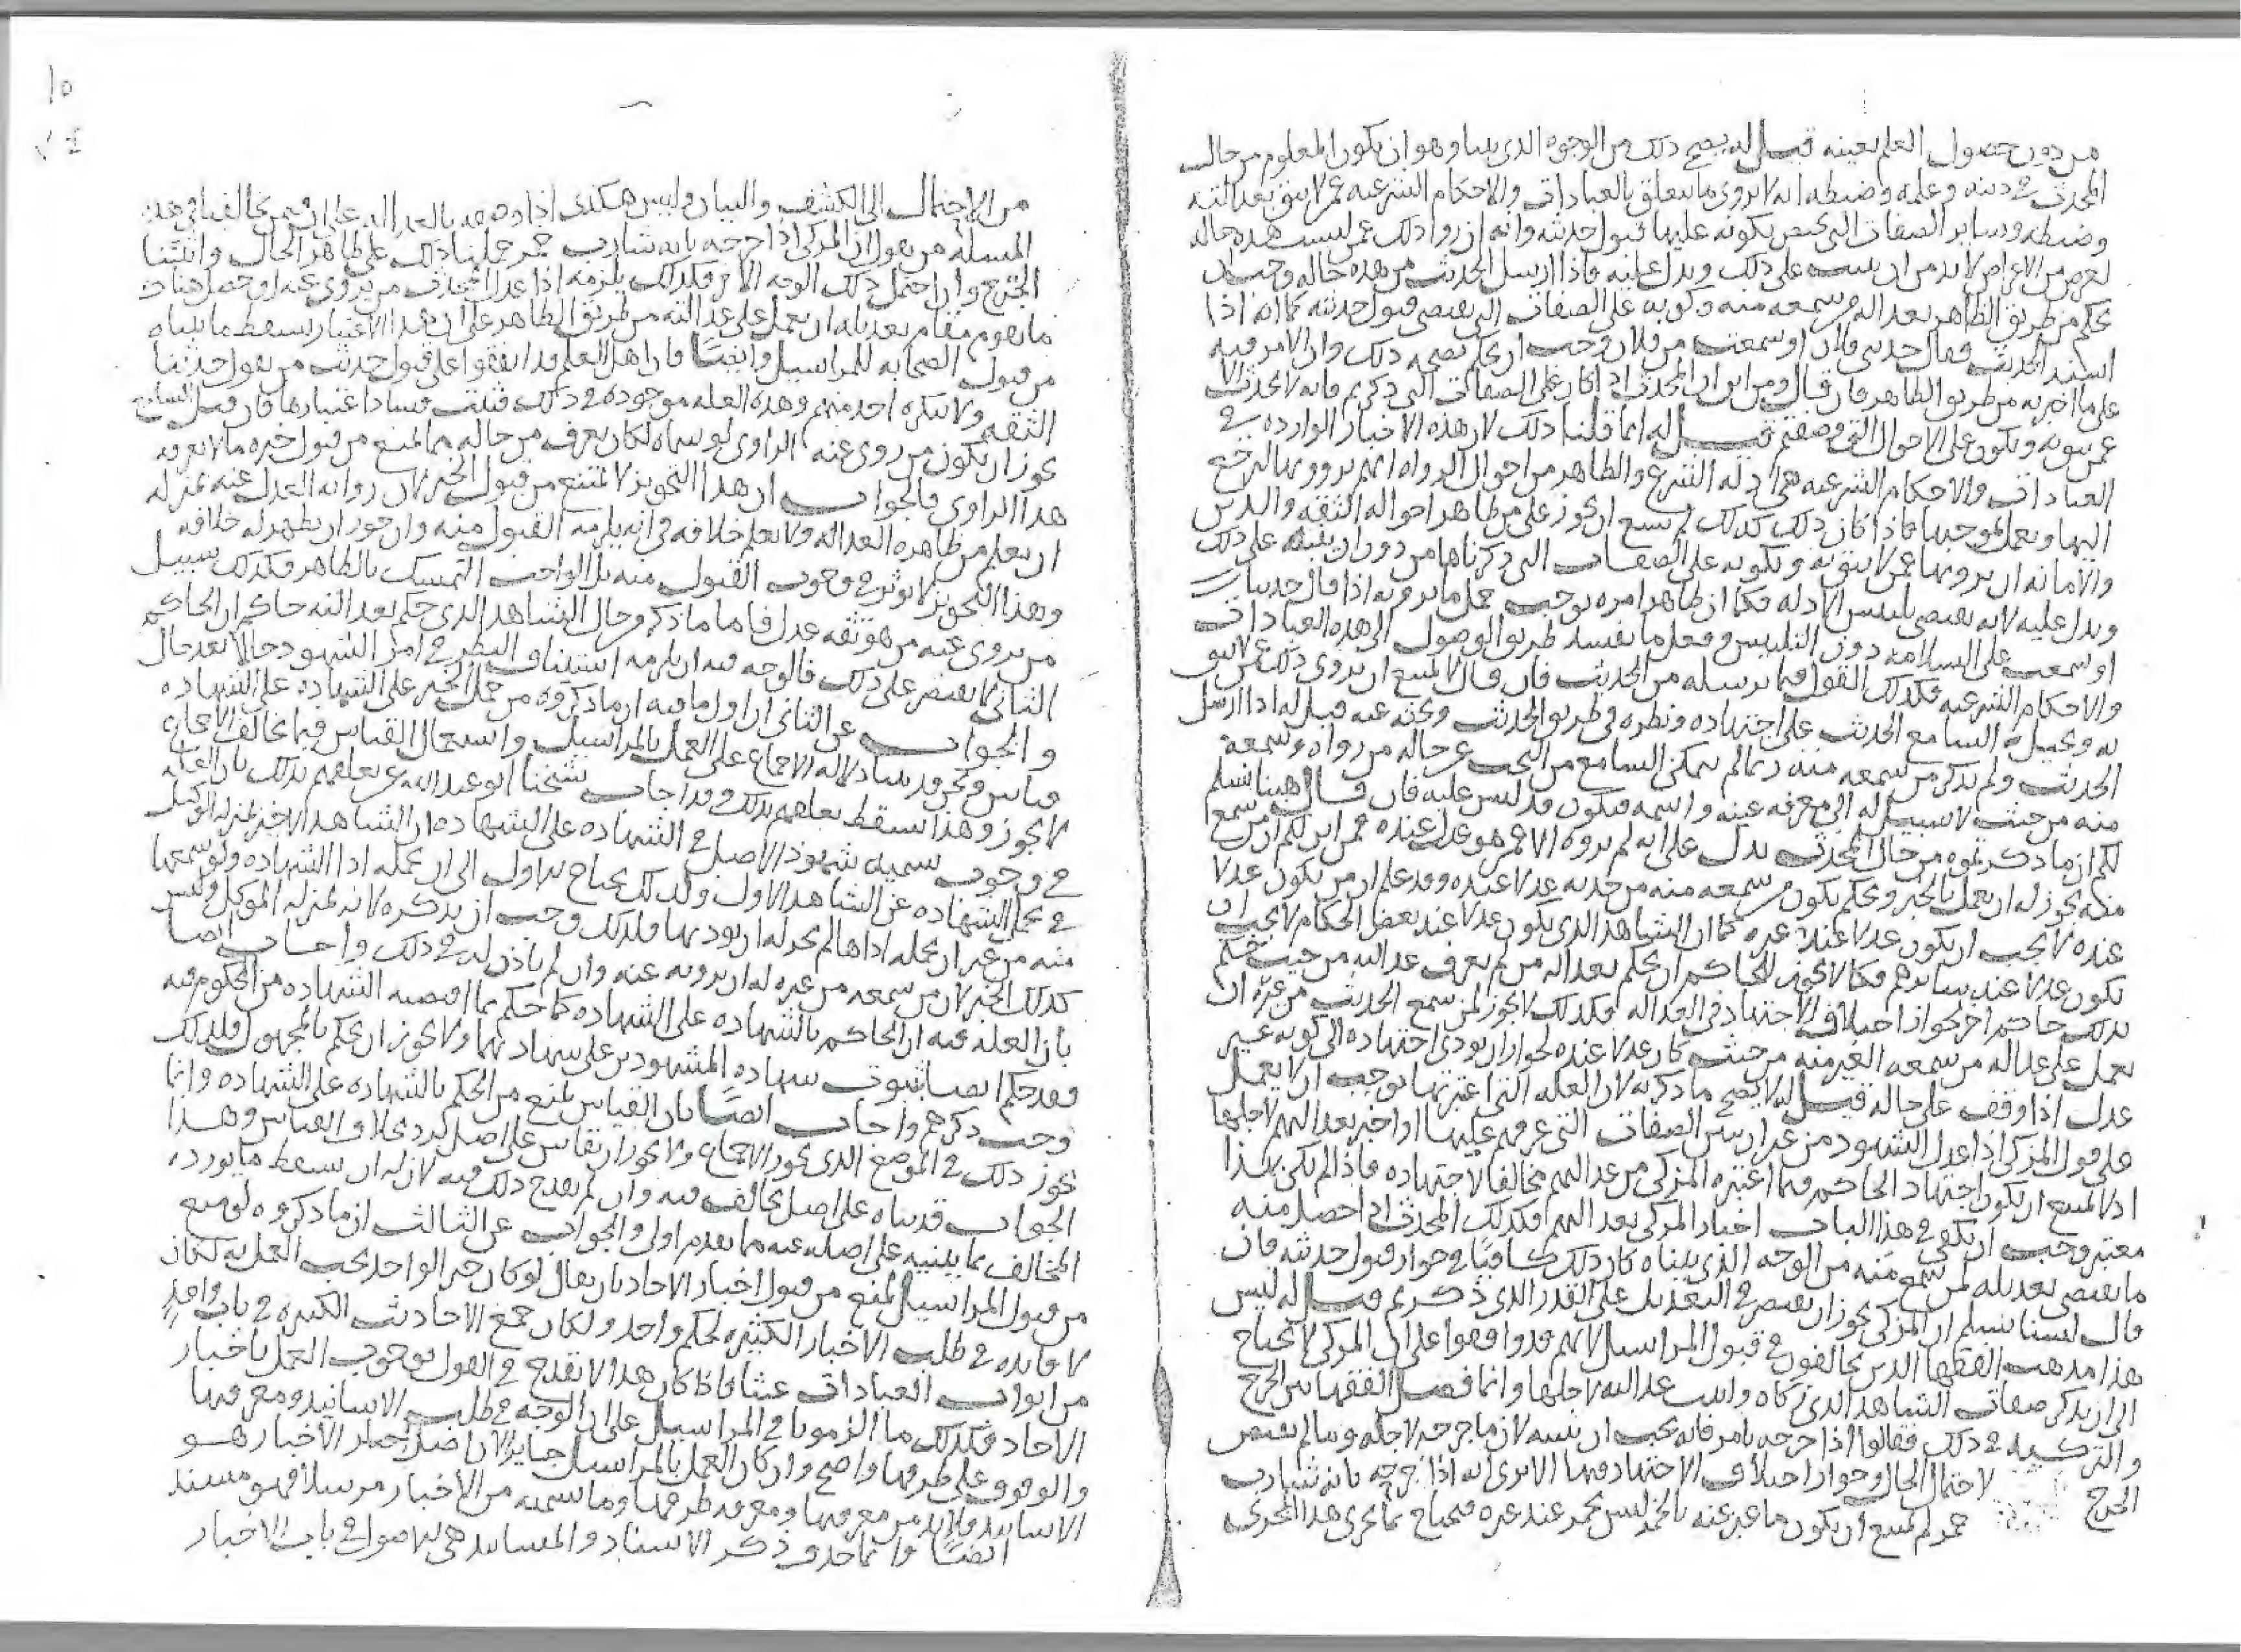 من دون حصول العلم بعينه قيل له يصح ذلك من الوجوه الذي بينا وهو ان يكون المعلوم من حال
المحدث في دينه وعلمه وضبطه انه لا يروي ما يتعلق بالعبادات والاحكام الشرعيه عمن لا يثق بعدالته
وضبطه وساير الصفات التي يختص بكونه عليها قبول حديثه وانه ان روا ذلك عمن ليست هذه حاله
لغرض من الاغراض لا بد من ان ينبه على ذلك ويدل عليه فاذا ارسل الحديث من هذه حاله وجب ان
يحكم من طريق الظاهر بعدالة من سمعه منه وكونه على الصفات التي يقتضي قبول حديثه كما انه اذا
اسند الحديث فقال حدثني فلان او سمعت من فلان وجب ان يحكم بصحه ذلك وان الامر فيه
على ما اخبر به من طريق الظاهر فان قال ومن اين ان المحدث اذا كان على الصفات التي ذكرتم فانه لا يحدث الا
عمن يثق به ويكون على الاحوال التي وصفتم قيل له انما قلنا ذلك لان هذه الاخبار الوارده في
العبادات والاحكام الشرعيه هي ادله الشرع والظاهر من احوال الرواه انهم يروونها ليرجع
اليها ويعمل بموجبها فاذا كان ذلك كذلك لم يسع ان يجوز على من ظاهر احواله الثقه والدين
والامانه ان يرويها عمن لا يثق به ويكونه على الصفات التي ذكرناها من دون ان ينبه على ذلك
ويدل عليه لانه يقتضي تلبيس الادله فكما ان ظاهر امره يوجب حمل ما يرويه اذا قال حدثنا
او سمعت على السلامه دون التلبيس وفعل ما يفسد طريق الوصول الى هذه العبادات
والاحكام الشرعيه فكذلك القول فيما يرسله من الحديث فان قال لا يمتنع ان يروي ذلك عمن لا يثق
به ويحيل السامع الحديث على اجتهاده ونظره في طريق الحديث وبحثه عنه قيل له اذا ارسل
الحديث ولم يذكر من سمعه منه لم يتمكن السامع من البحث عن حاله من رواه وسمعه
منه من حيث لا سبيل له الى معرفه عينه واسمه فيكون قد لبس عليه فان قال هبنا نسلم
لكم ان ما ذكرتموه من حال المحدث يدل على انه لم يروه الا عمن هو عدل عنده فمن اين لكم ان من سمع
منه يجوز له ان يعمل بالخبر ويحكم بكون من سمعه منه من حديثه عدلا عنده وقد علم ان من يكون عدلا
عنده لا يجب ان يكون عدلا عند غيره كما ان الشاهد الذي يكون عدلا عند بعض الحكام لا يجب ان
يكون عدلا عند سايرهم فكما لا يجوز للحاكم ان يحكم بعدالة من لم يعرف عدالته من حيث حكم
بذلك حاكم اخر لجواز اختلاف الاجتهاد في العداله فكذلك لا يجوز لمن سمع الحديث من غيره ان
يعمل على عداله من سمعه الغير منه من حيث كان عدلا عنده لجواز ان يودي اجتهاده الى كونه غير
عدل اذا وقف على حاله قيل له لا يصح ما ذكرته لان العله التي اعتبرتها توجب ان لا يعمل
على قول المزكي اذا عدل الشهود من غير ان يبين الصفات التي عرفهم عليها واخبر بعدالتهم لاجلها
اذ لا يمتنع ان يكون اجتهاد الحاكم فيما اعتبره المزكي من عدالتهم مخالفا لاجتهاده فاذا لم يكن هذا
معتبر وجب ان يكفي في هذا الباب اخبار المزكي بعدالتهم فكذلك المحدث اذا حصل منه
ما يقتضي تعديله لمن سمع منه من الوجه الذي بيناه كان ذلك كافيا في جواز قبول حديثه فان
قال لسنا نسلم ان المزكي يجوز ان يقتصر في التعديل على القدر الذي ذكرتم قيل له ليس
هذا مذهب الفقها الذين يخالفون في قبول المراسيل لانهم قد وافقوا على ان المزكي لا يحتاج
الى ان يذكر صفات الشاهد الذي زكاه وثبتت عدالته لاجلها وانما فصل الفقها بين الجرح
والتزكيه في ذلك فقالوا اذا جرحه بامر فانه يجب ان يبينه لان ما جرحه لاجله وما لم يقتض
الجرح لاحتمال الحال وجواز اختلاف الاجتهاد فيها الا ترى انه اذا جرحه بانه شارب
خمر لم يمتنع ان يكون ما عبر عنه بالخمر ليس بخمر عند غيره فيحتاج ما يجري هذا المجرى
١٥
٧٤
من الاحتمال الى الكشف والبيان وليس هكذى اذا وصفه بالعداله على ان فيمن يخالفنا في هذه
المسله من يقول ان المزكي اذا جرحه بانه شارب خمر حملنا ذلك على ظاهر الحال واثبتنا
الجرح وان احتمل ذلك الوجه الاخر فكذلك يلزمه اذا عدل المحدث من يروي عنه او حصل هناك
ما يقوم مقام تعديله ان يعمل على عدالته من طريق الظاهر على ان هذا الاعتبار يسقط ما بيناه
من قبول الصحابه للمراسيل وايضا فان اهل العلم قد اتفقوا على قبول حديث من يقول حدثنا
الثقه ولا ينكره احد منهم وهذه العله موجوده في ذلك فثبت فساد اعتبارها فان قيل اليس
يجوز ان يكون من روى عنه الراوي لو سماه لكان يعرف من حاله ما يمنع من قبول خبره ما لا يعرفه
هذا الراوي فالجواب ان هذا التجويز لا يمتنع من قبول الخبر لان روايه العدل عنه بمنزله
ان يعلم من ظاهره العداله ولا يعلم خلافه في انه يلزمه القبول منه وان جوز ان يظهر له خلافه
وهذا التجويز لا يوثر في وجوب القبول منه بل الواجب التمسك بالظاهر فكذلك سبيل
من يروي عنه من هو ثقه عدل فاما ما ذكر وحال الشاهد الذي حكم بعدالته حاكم ان الحاكم
الثاني لا يقتصر على ذلك فالوجه فيه ان يلزمه استيناف النظر في امر الشهود حالا بعد حال
والجواب عن الثاني ان اول ما فيه ان ما ذكروه من حمل الخبر على الشهاده على الشهاده
قياس ونحن قد بينا دلاله الاجماع على العمل بالمراسيل واستعمال القياس فيما يخالف الاجماع
لا يجوز وهذا يسقط تعلقهم بذلك وقد اجاب شيخنا ابو عبدالله عن تعلقهم بذلك بان العله
في وجوب تسميه شهود الاصل في الشهاده على الشهاده ان الشاهد الاخر بمنزله الوكيل
في تحمل الشهاده عن الشاهد الاول ولذلك يحتاج الاول الى ان يحمله اداء الشهاده ولو سمعها
منه من غير ان يحمله اداها لم يجز له ان يوديها فلذلك وجب ان يذكره لانه بمنزله الموكل وليس
كذلك الخبر لان من سمعه من غيره له ان يرويه عنه وان لم ياذن له في ذلك واجاب ايضا
بان العله فيه ان الحاكم بالشهاده على الشهاده كما حكم بما اقتضته الشهاده من الحكوم فيه
وقد حكم ايضا بثبوت شهاده المشهودين على شهادتهما ولا يجوز ان يحكم بالمجهول فلذلك
وجب ذكرهم واجاب ايضا بان القياس يمنع من الحكم بالشهاده على الشهاده وانما
يجوز ذلك في الموضع الذي يجوز الاجماع ولا يجوز ان يقاس على اصل ورد بخلاف القياس وهذا
الجواب قد بيناه على اصل يخالف فيه وان لم يقدح ذلك فيه لان له ان يسقط ما يورده
المخالف بما يبنيه على اصله عنه ما تقدم اولى والجواب عن الثالث ان ما ذكروه لو منع
من قبول المراسيل لمنع من قبول اخبار الاحاد بان يقال لو كان خبر الواحد يجب العمل به لكان
لا فايده في طلب الاخبار الكثيره لحكم واحد ولكان جمع الاحاديث الكثيره في باب واحد
من ابواب العبادات عبثا فاذا كان هذا لا يقدح في القول بوجوب العمل باخبار
الاحاد فكذلك ما الزمونا في المراسيل على ان الوجه في طلب الاسانيد ومعرفتها
والوقوف على طرقها واضح وان كان العمل بالمراسيل جايزا لان اصل الاخبار هو
الاسانيد ولا بد من معرفتها ومعرفه طرقها وما سميته من الاخبار مرسلا فهو مسند
ايضا وانما حذف ذكر الاسناد والمسانيد هي الاصول في باب الاخبار